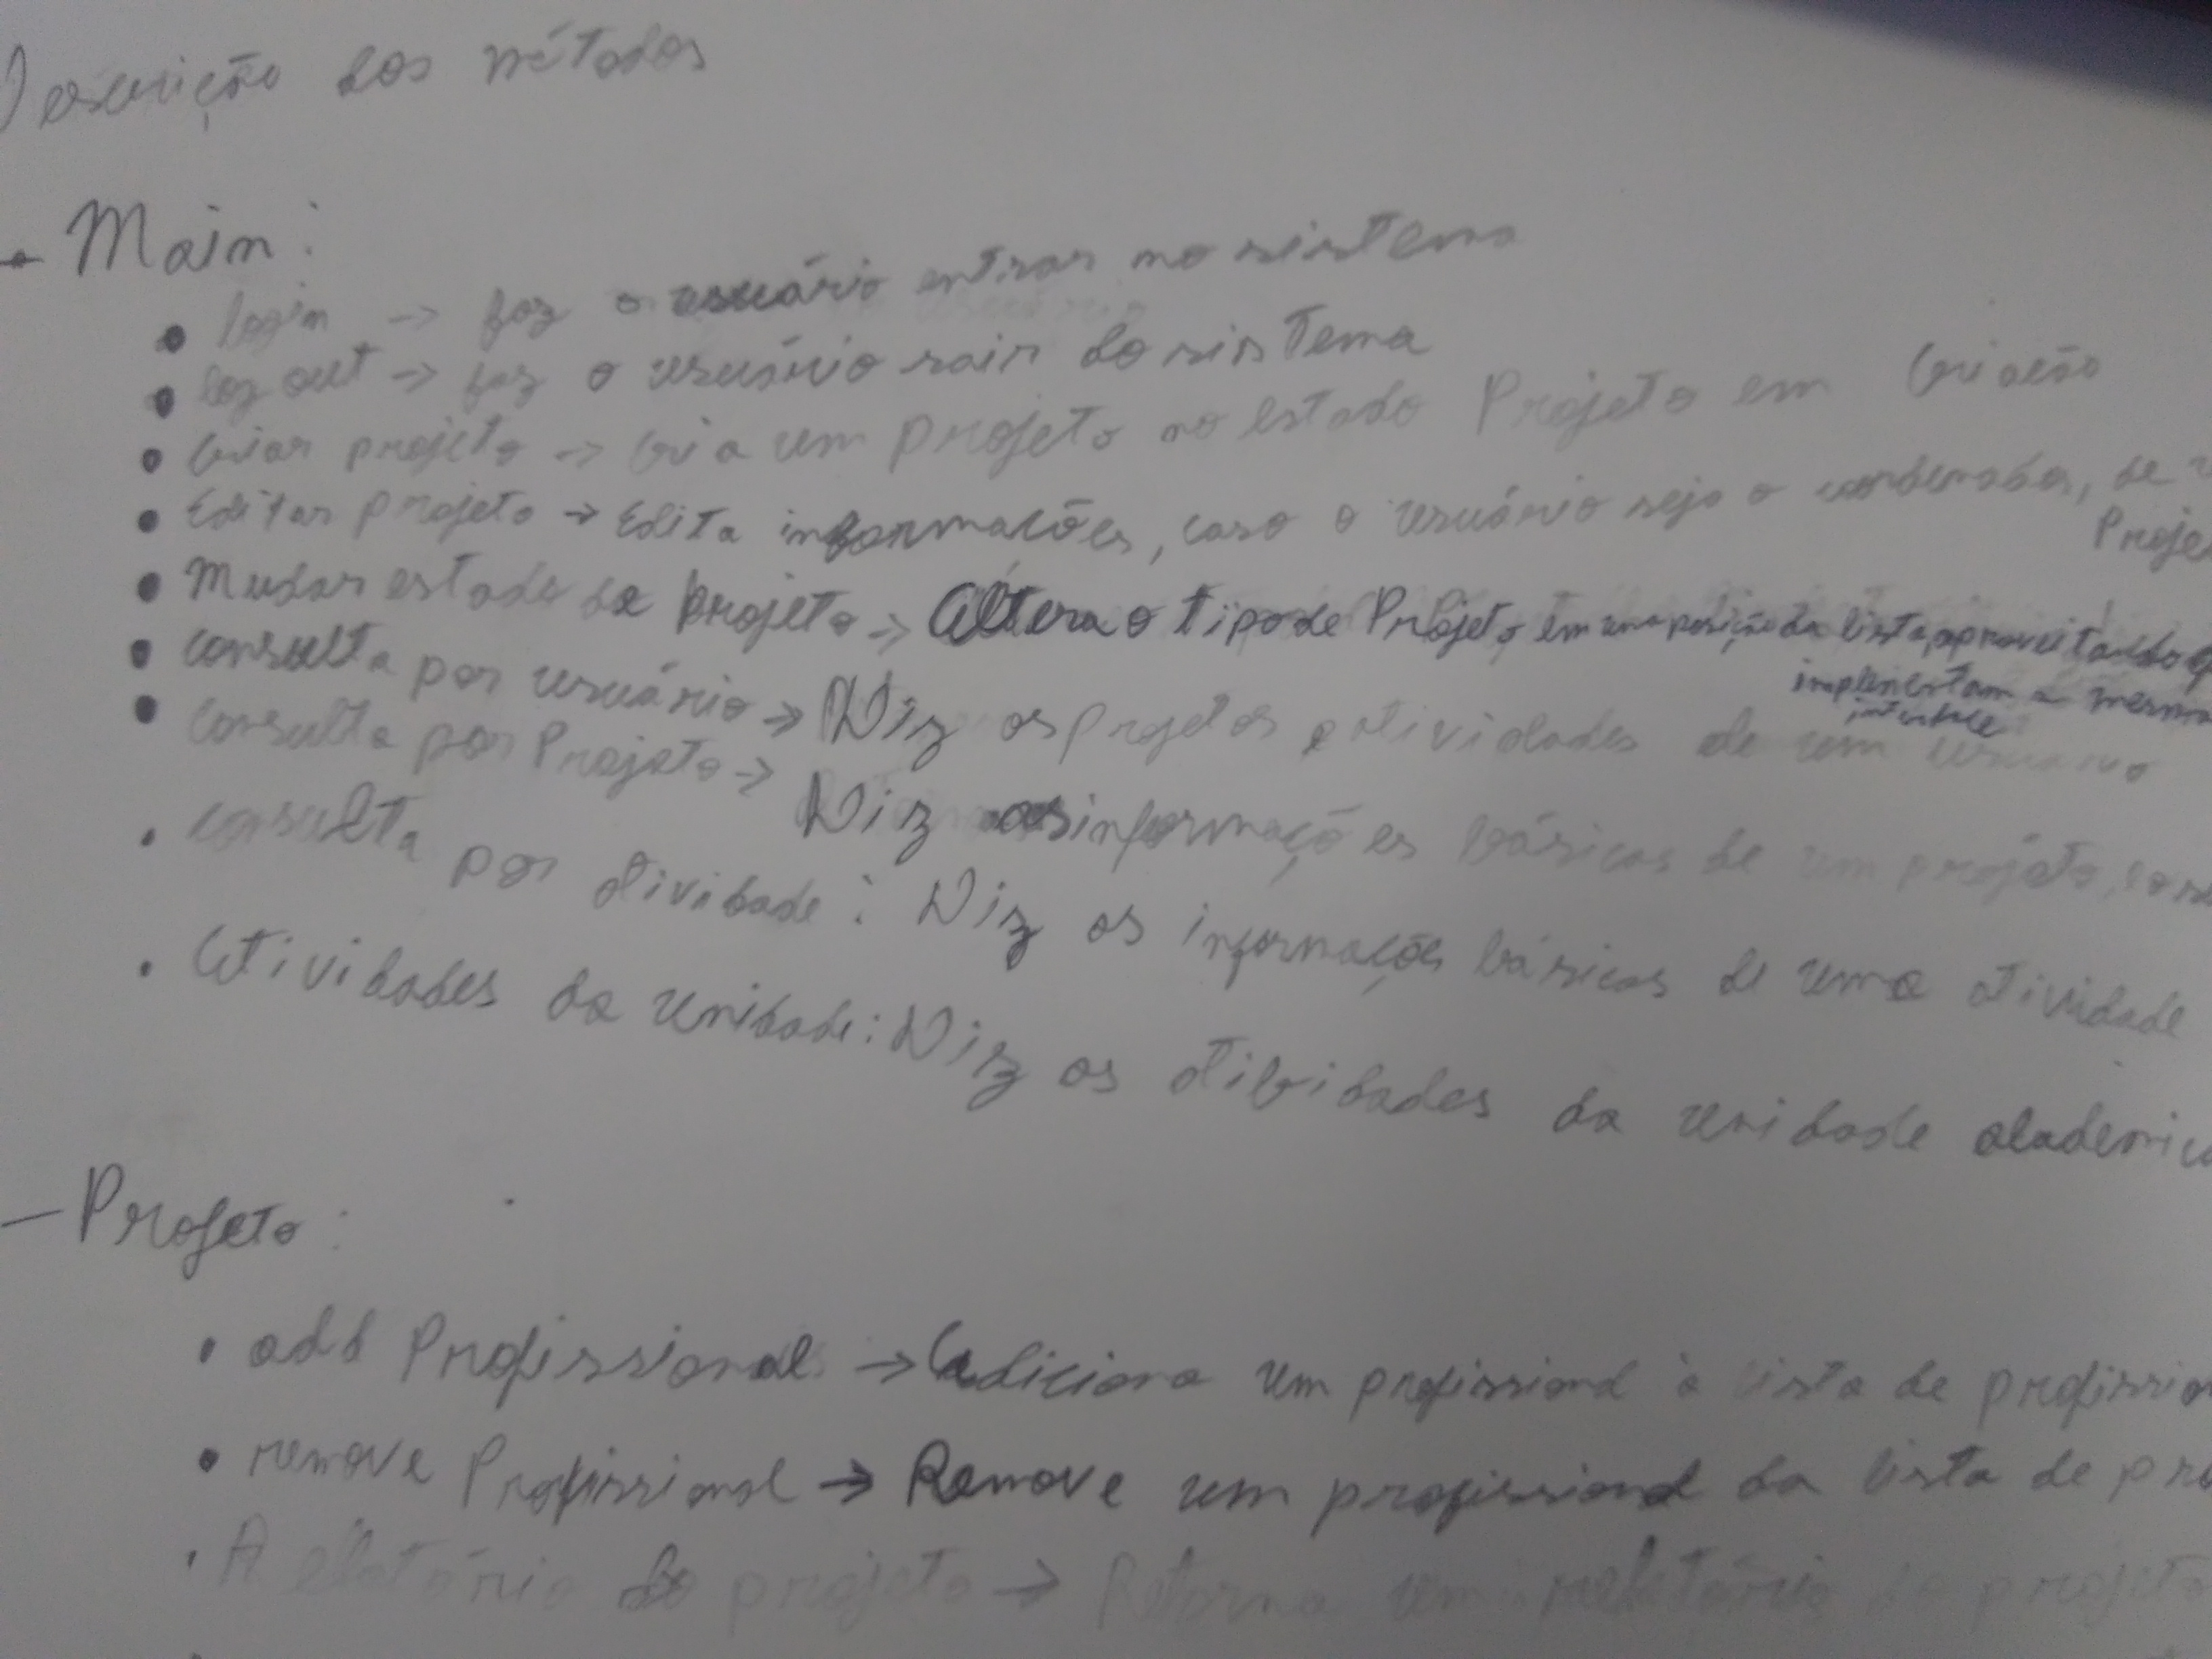 Descrição dos métodos
- Main:
• login -> faz o usuário entrar no sistema
• log out -> faz o usuário sair do sistema
• Criar projeto -> Cria um projeto no estado Projeto em Criação
• Editar projeto -> Edita informações, caso o usuário seja o cordenador, de
Proje
• Mudar estado de projeto -> Altera o tipo de Projeto em uma posição da lista, aproveitando q
implementam a mesma
interface
• consulta por usuário -> Diz os projetos e atividades de um usuário
• Consulta por Projeto -> Diz as informações básicas de um projeto,
• consulta por atividade: Diz as informações básicas de uma atividade
• Atividades da unidade: Diz as atividades da unidade academica
- Projeto:
• add Profissional -> adiciona um profissional à lista de profission
• remove Profissional -> Remove um profissional da lista de pro
• Relatório do projeto -> Retorna um relatório do projeto